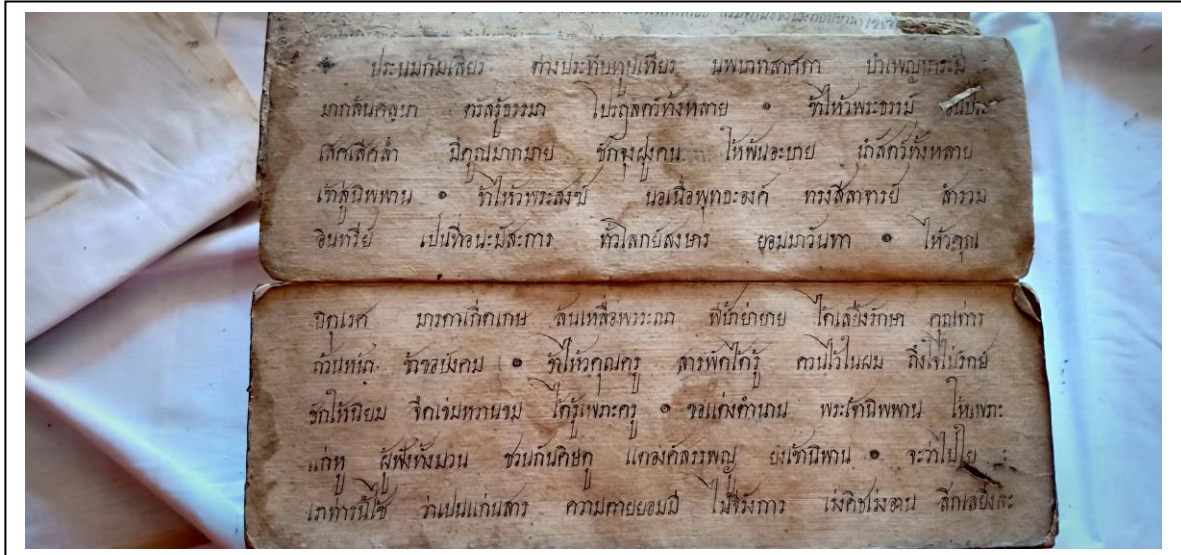 ประนมก้มเสียร ต่างประทีบทูปเทียร นพบาทสาศดา บำเพญบาระมี
มากล้นคณนา ตรสรู้ธรรมา โปรฎสตว์ทั้งหลาย ๏ ข้าไหว้พระธรรม์ อันประ
เสดเลิดล้ำ มีคุณมากมาย ชักจุงฝูงคน ให้พ้นอะบาย นำสัตว์ทั้งหลาย
เข้าสู่นิพพาน ๏ ข้าไหว้พระสงฆ์ นอเนื้อพุทธะองค์ ทรงสีลาจารย์ สำรวม
อินทรีย์ เป็นที่อนะมัสะการ ทั่วโลกย์สงษาร ยอมมาวันทา ๏ ไหว้คุณ
บิดุเรศ มารดาเกิดเกษ ล้นเหลือพรระณา พี่ป้าย่ายาย ได้เลยี้งรักษา คุณท่าร
ถ้วนหน้า ข้าขอบังคม ๏ ข้าไหว้คุณครู สารพัดได้รู้ ควนไว้ในผม ถึงใจไปรักย์
ชักให้นิยม จืดเข่มหวานขม ได้รู้เพราะครู ๏ ขอแต่งตำนาน พระเจ้านิพพาน ให้เพราะ
แก่หู ผู้ฟังทั้งมวน ชวนกันคิษดู แต่องค์สรรพญู ยังเข้านิพาน ๏ จะว่าไปใย
เราท่ารนี้ไซ้ ว่าเปนแก่นสาร ความตายยอมมี ไม่จิรังการ เร่งคิชเร่งอาน ลึกเลยี้งละ